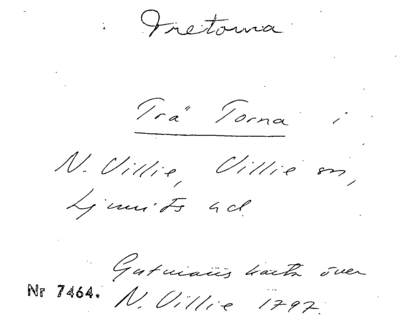 Tretorna
Trä Torna i
N. Villie, Villie sn,
Ljunits hd.
Gutmans karta över
Nr 7464. N. Villie 1797.